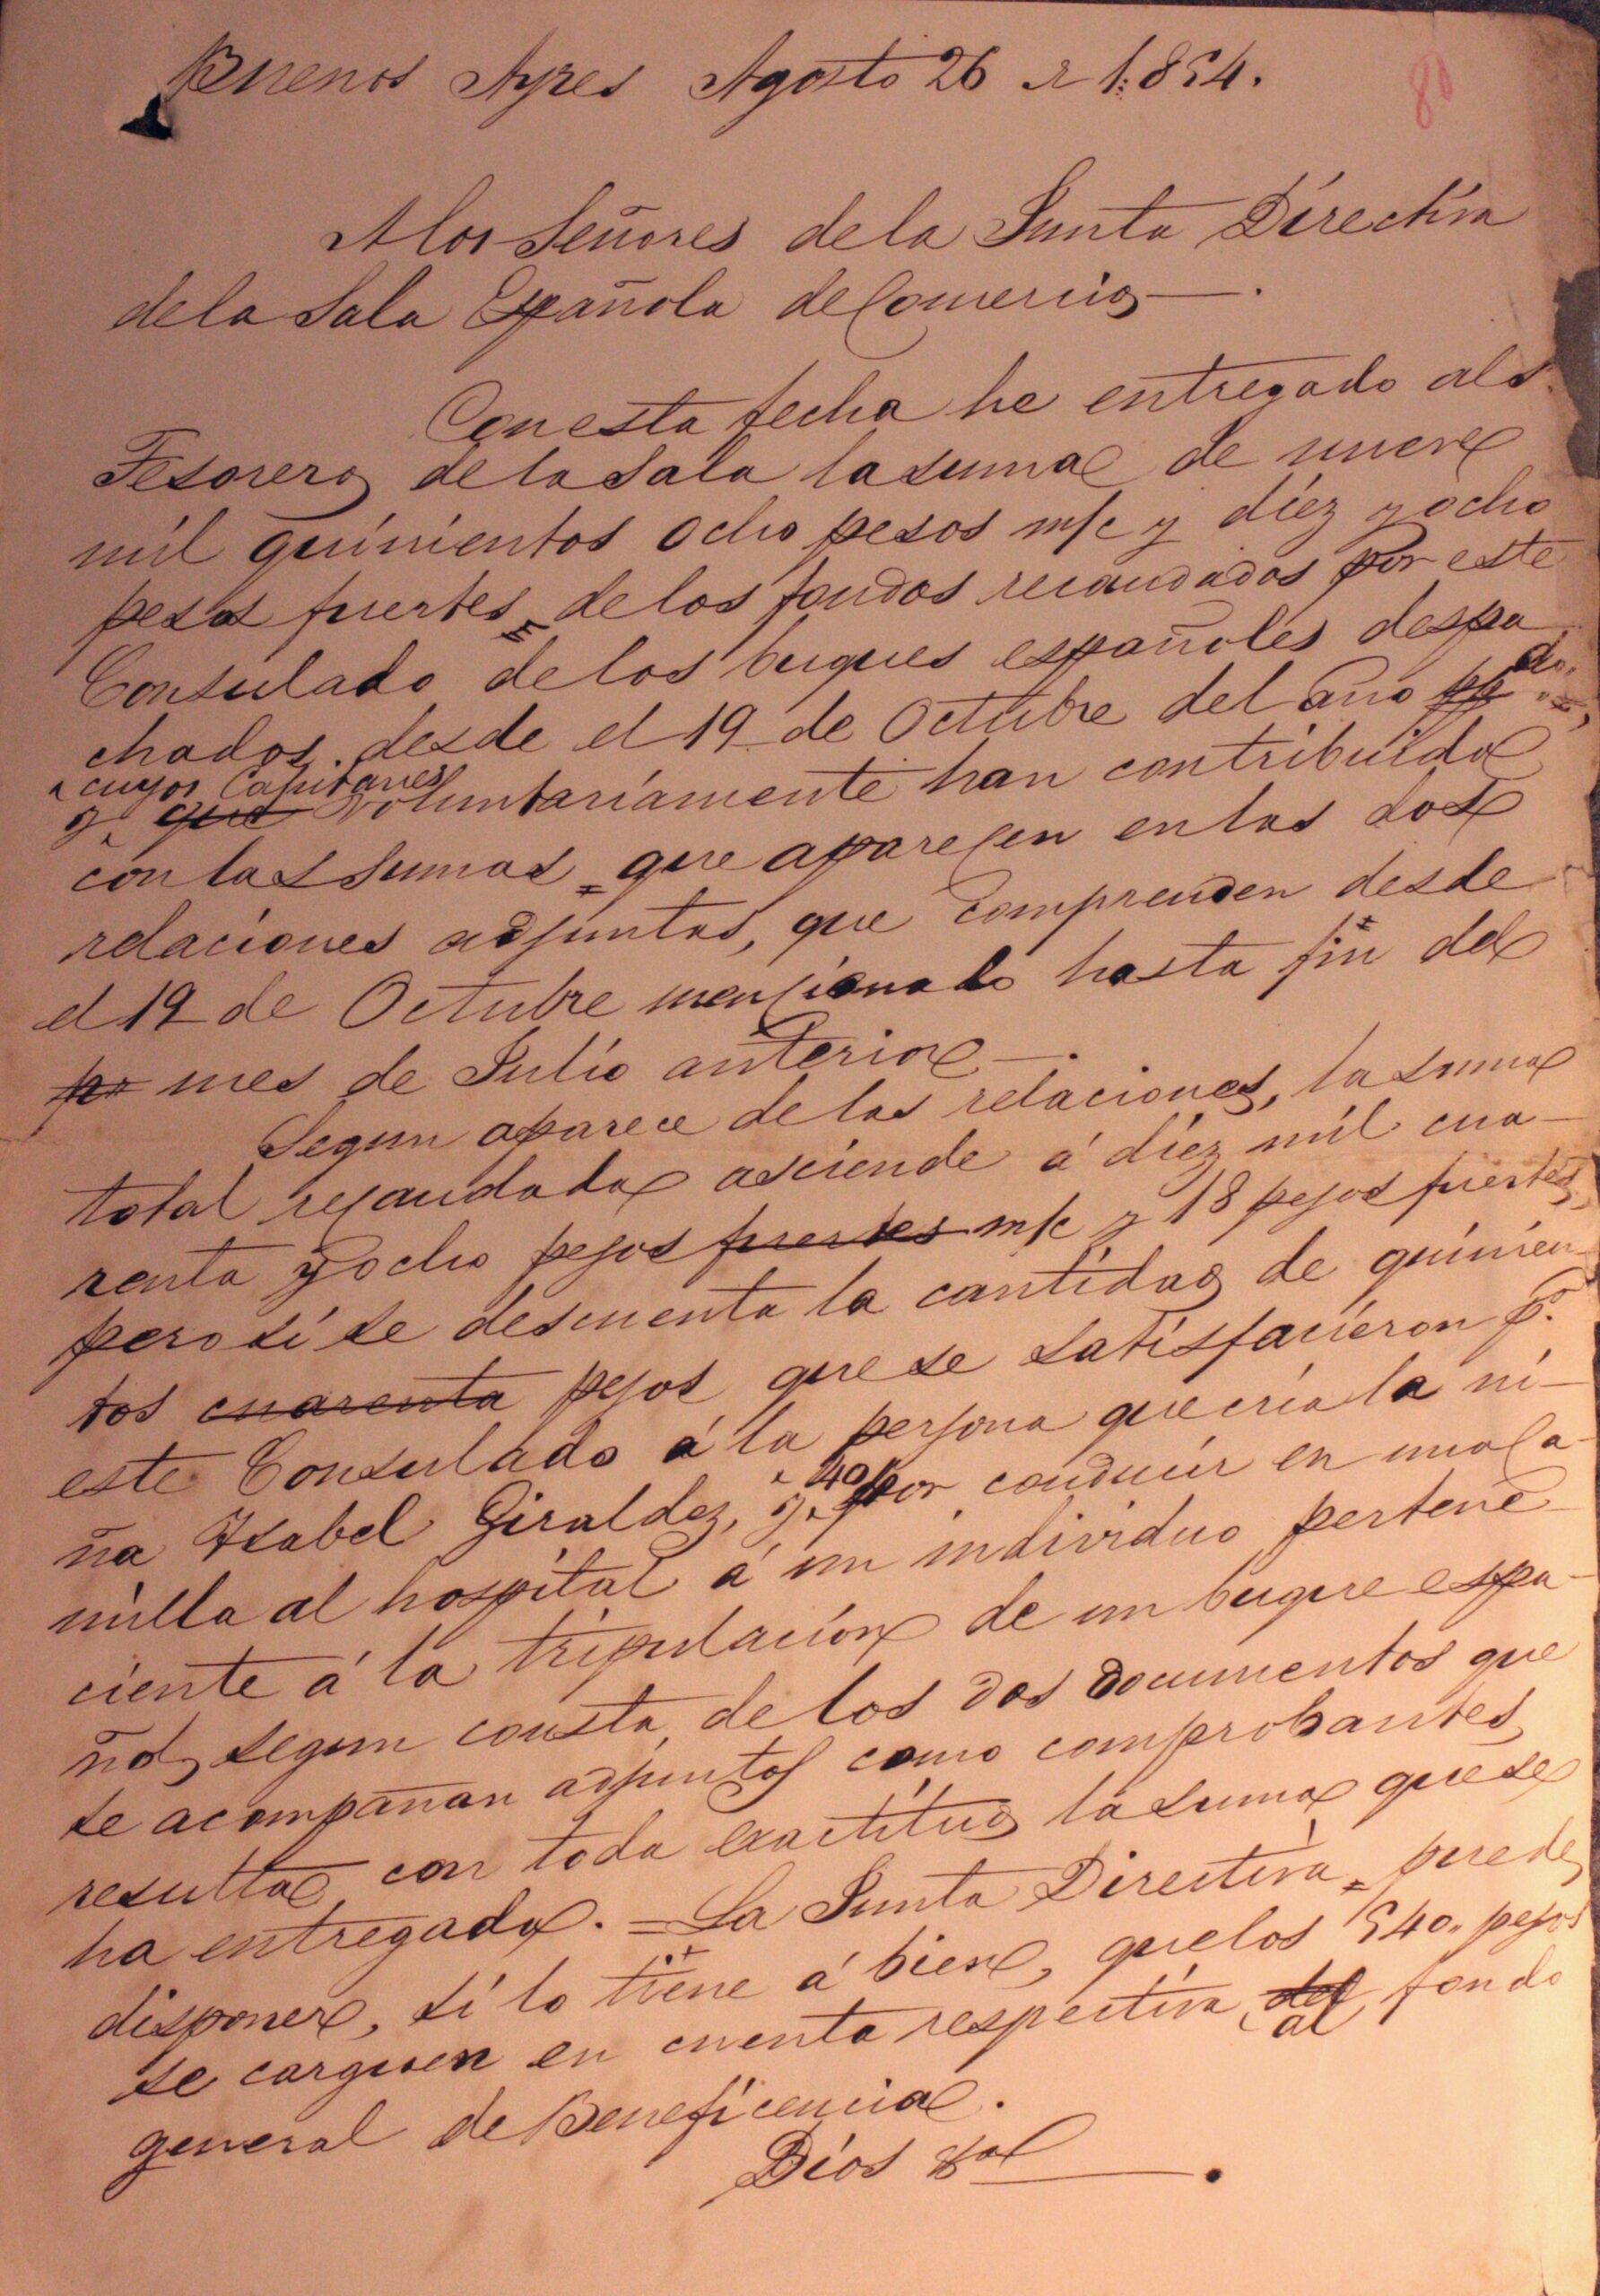 Buenos Ayres Agosto 26 de 1:854.
80
A los Señores de la Junta Directiva
de la Sala Española de Comercio —.
Con esta fecha he entregado al S.
Tesorero de la Sala la suma de nueve
mil quinientos ocho pesos m/c y diez y ocho
pesos fuertes = de los fondos recaudados por este
Consulado de los buques españoles despa
chados desde el 19 de Octubre del año ppdo
cuyos Capitanes
y que voluntariamente han contribuido
con las sumas = que aparecen en las dos
relaciones adjuntas, que comprenden desde
el 19 de Octubre mencionado hasta fin del
pr mes de Julio anterior —.
Segun aparece de las relaciones, la suma
total recaudada asciende á diez mil cua-
renta y ocho pesos fuertes m/c y 18 pesos fuertes,
pero si se descuenta la cantidad de quinien-
tos cuarenta pesos que se satisfacieron p.r
este Consulado á la persona que cria la ni-
ña Ysabel Giraldez, y 40 por conducir en una ca-
milla al hospital á un individuo pertene-
ciente á la tripulacion de un buque espa-
ñol, segun consta de los dos documentos que
se acompañan adjuntos como comprobantes,
resulta con toda exactitud la suma que se
ha entregado. = La Junta Directiva = puede
disponer, si lo tiene á bien, que los 540 pesos
se carguen en cuenta respectiva del al fondo
general de Beneficencia.
Dios &al —.